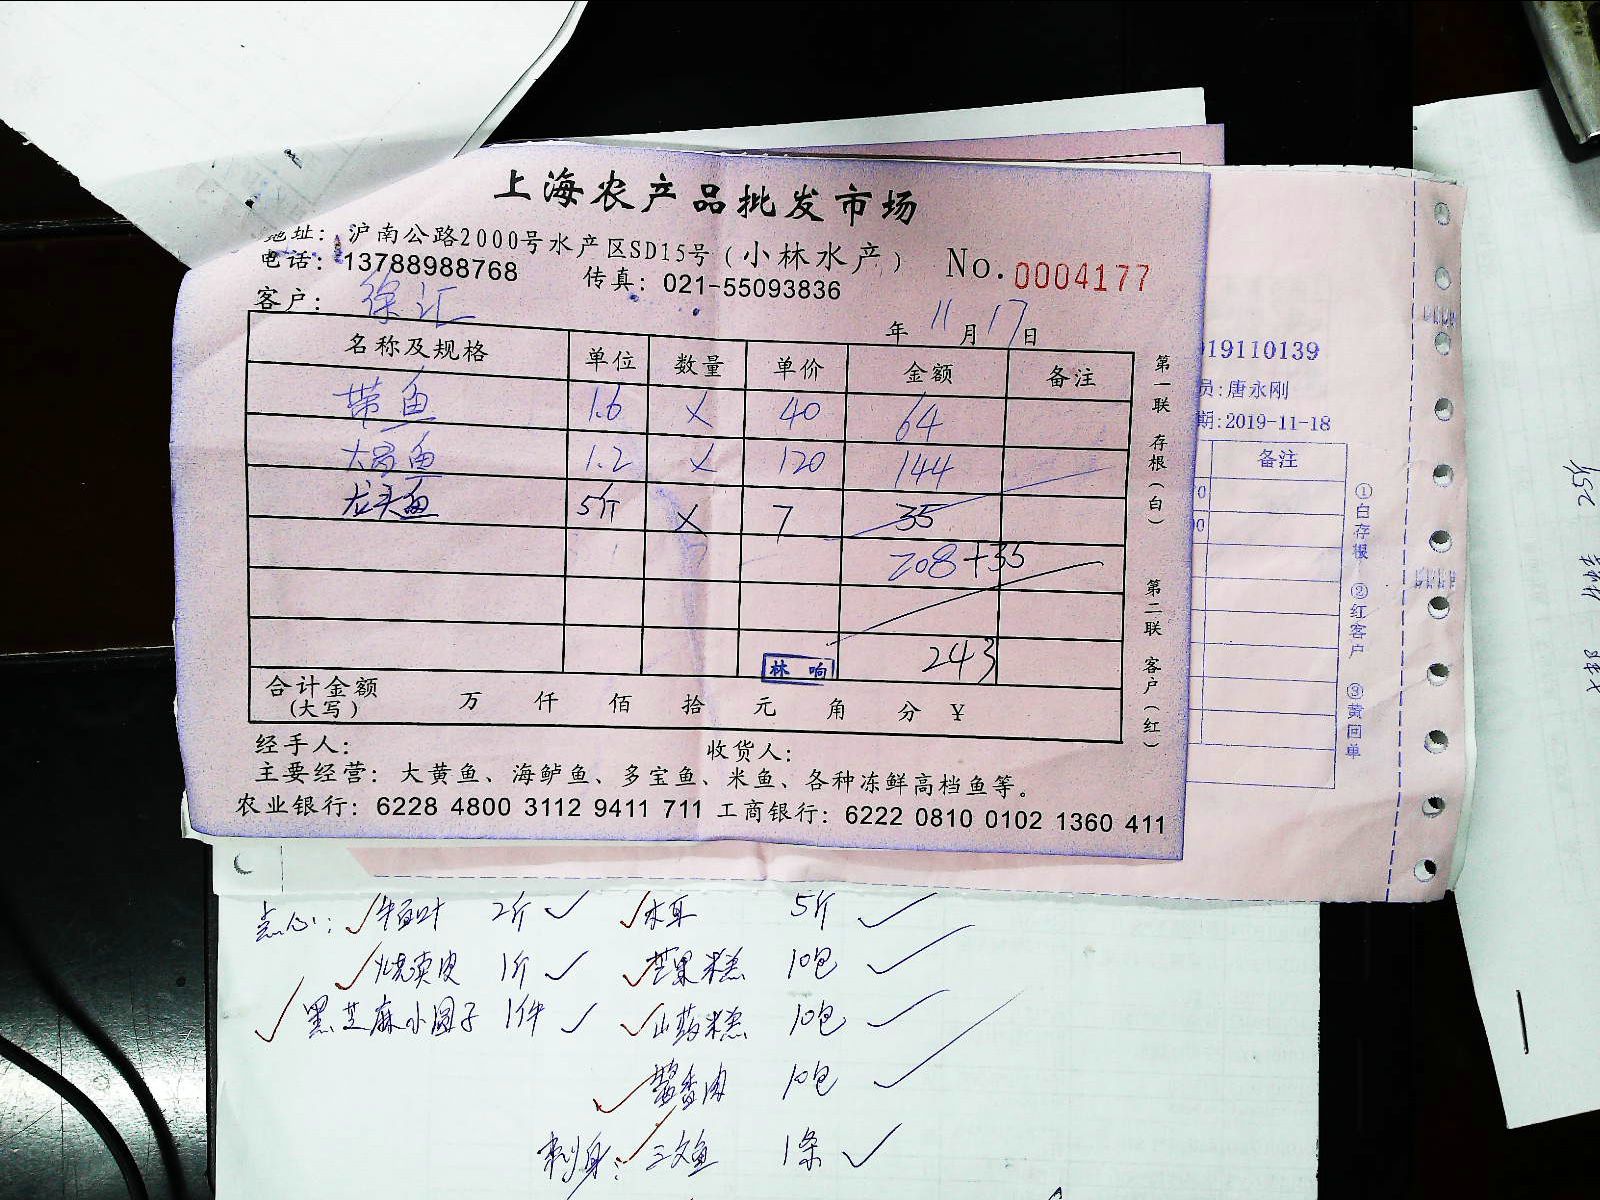 上海农产品批发市场
地址：沪南公路2000号水产区SD15号（小林水产） No.0004177
电话：13788988768 传真：021-55093836
客户：徐汇 年11月17日
名称及规格 单位 数量 单价 金额 备注
带鱼 1.6 × 40 64
鱼 1.2 × 120 144
龙头鱼 5斤 × 7 35
208+35
243
林响
合计金额 万 仟 佰 拾 元 角 分 ￥
（大写）
经手人： 收货人：
主要经营：大黄鱼、海鲈鱼、多宝鱼、米鱼、各种冻鲜高档鱼等。
农业银行：6228 4800 3112 9411 711 工商银行：6222 0810 0102 1360 411
第一联 存根（白） 第二联 客户（红）
19110139
员:唐永刚
期:2019-11-18
备注
①白存根 ②红客户 ③黄回单
点心： 牛百叶 2斤 木耳 5斤
烧卖皮 1斤 芒果糕 10包
黑芝麻小圆子 1件 山药糕 10包
10包
刺身： 三文鱼 1条